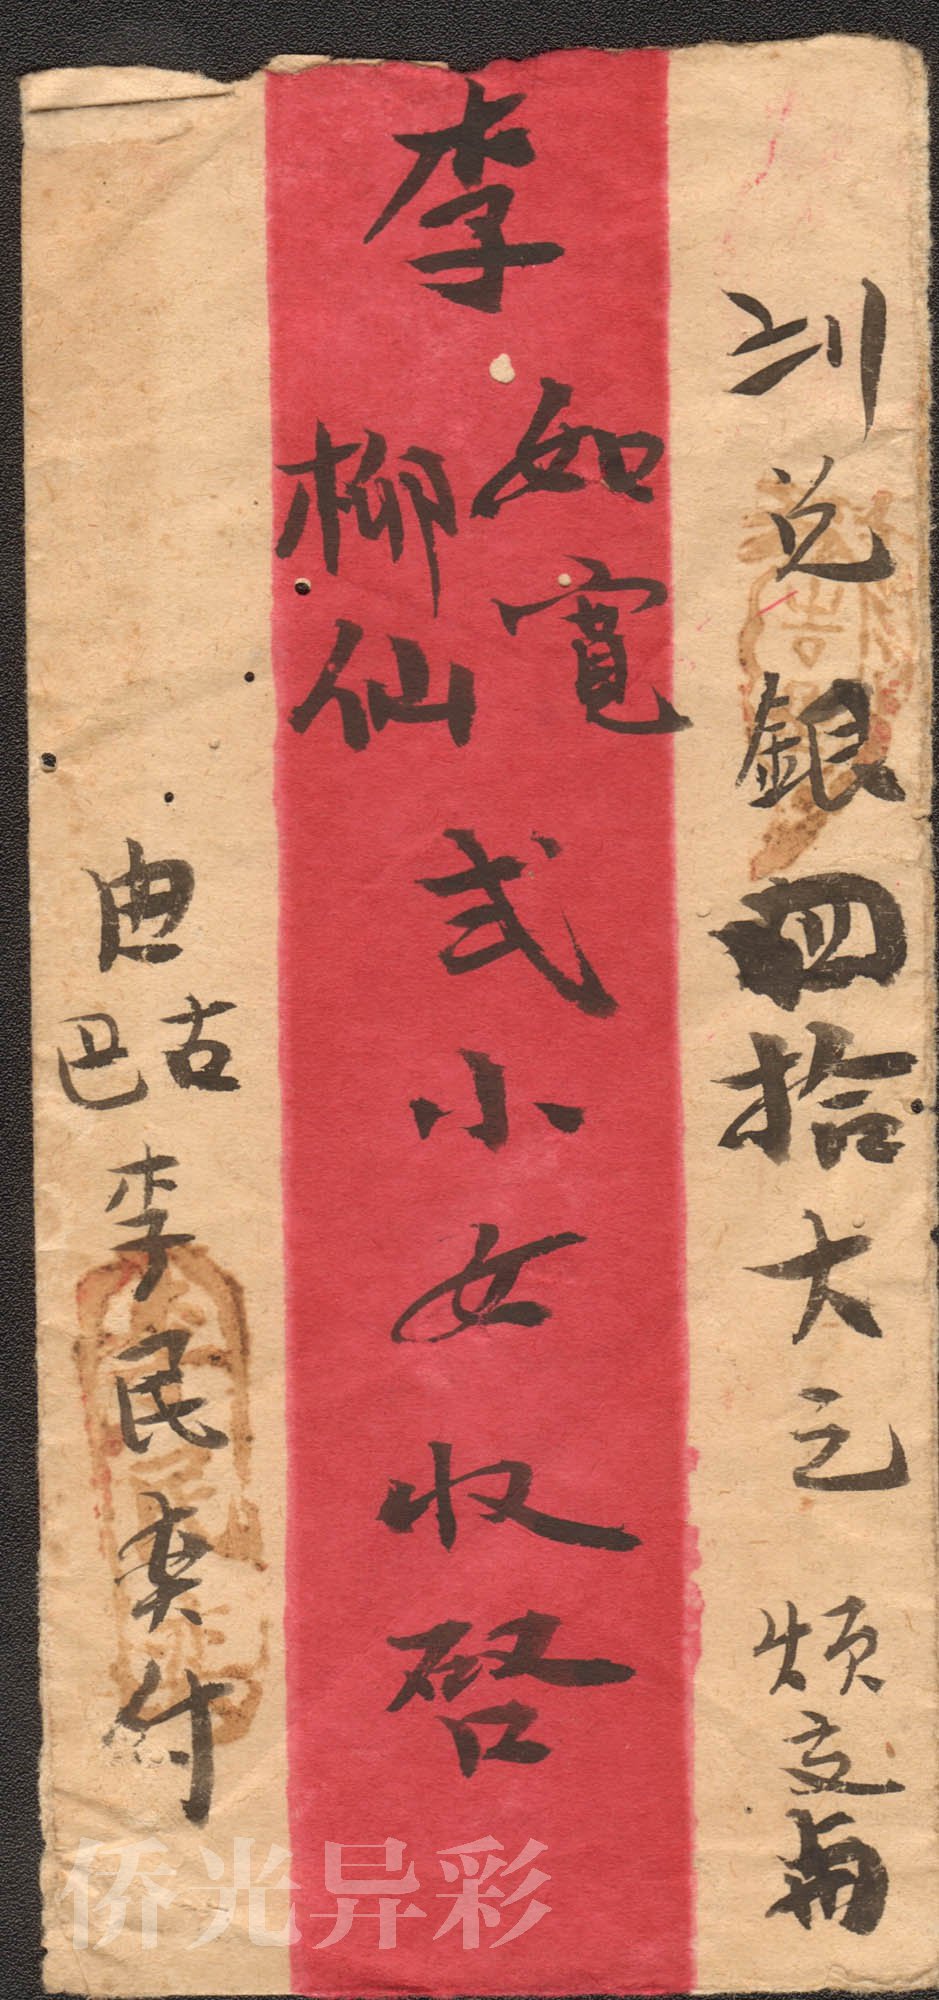 到兑銀四拾大元 煩交與
李如寬柳仙弍小女收啓
由古巴李民英付
侨光异彩